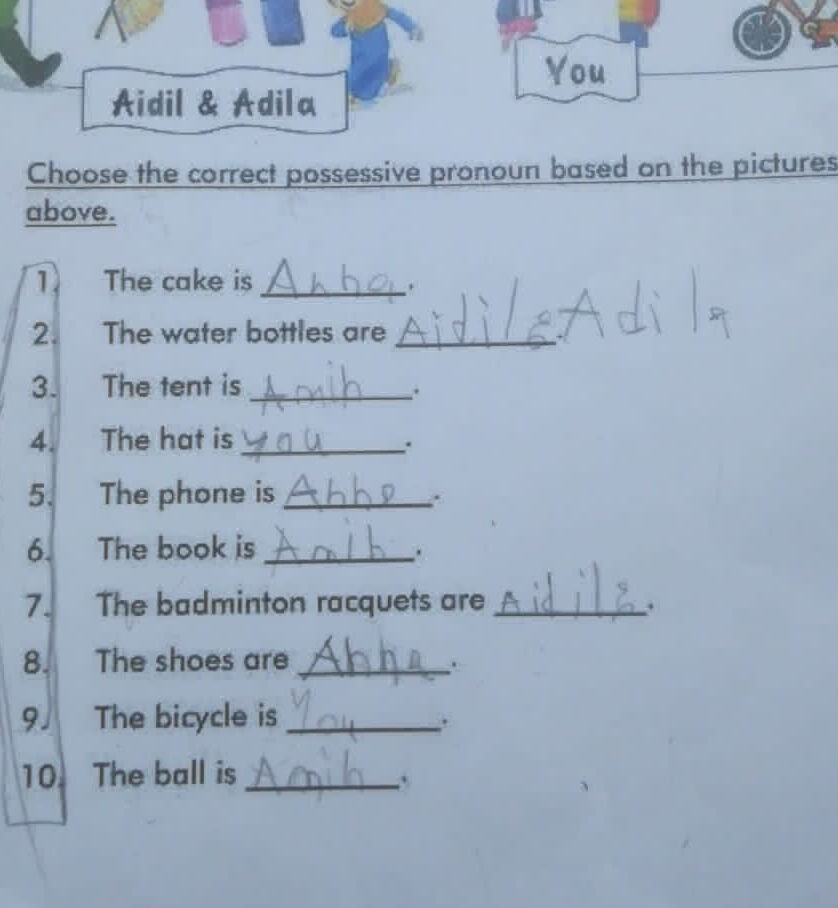 Aidil & Adila
You
Choose the correct possessive pronoun based on the pictures
above.
1. The cake is Anna.
2. The water bottles are Aidil & Adila.
3. The tent is Amin.
4. The hat is you.
5. The phone is Anna.
6. The book is Amin.
7. The badminton racquets are Aidil &.
8. The shoes are Anna.
9. The bicycle is You.
10. The ball is Amin.